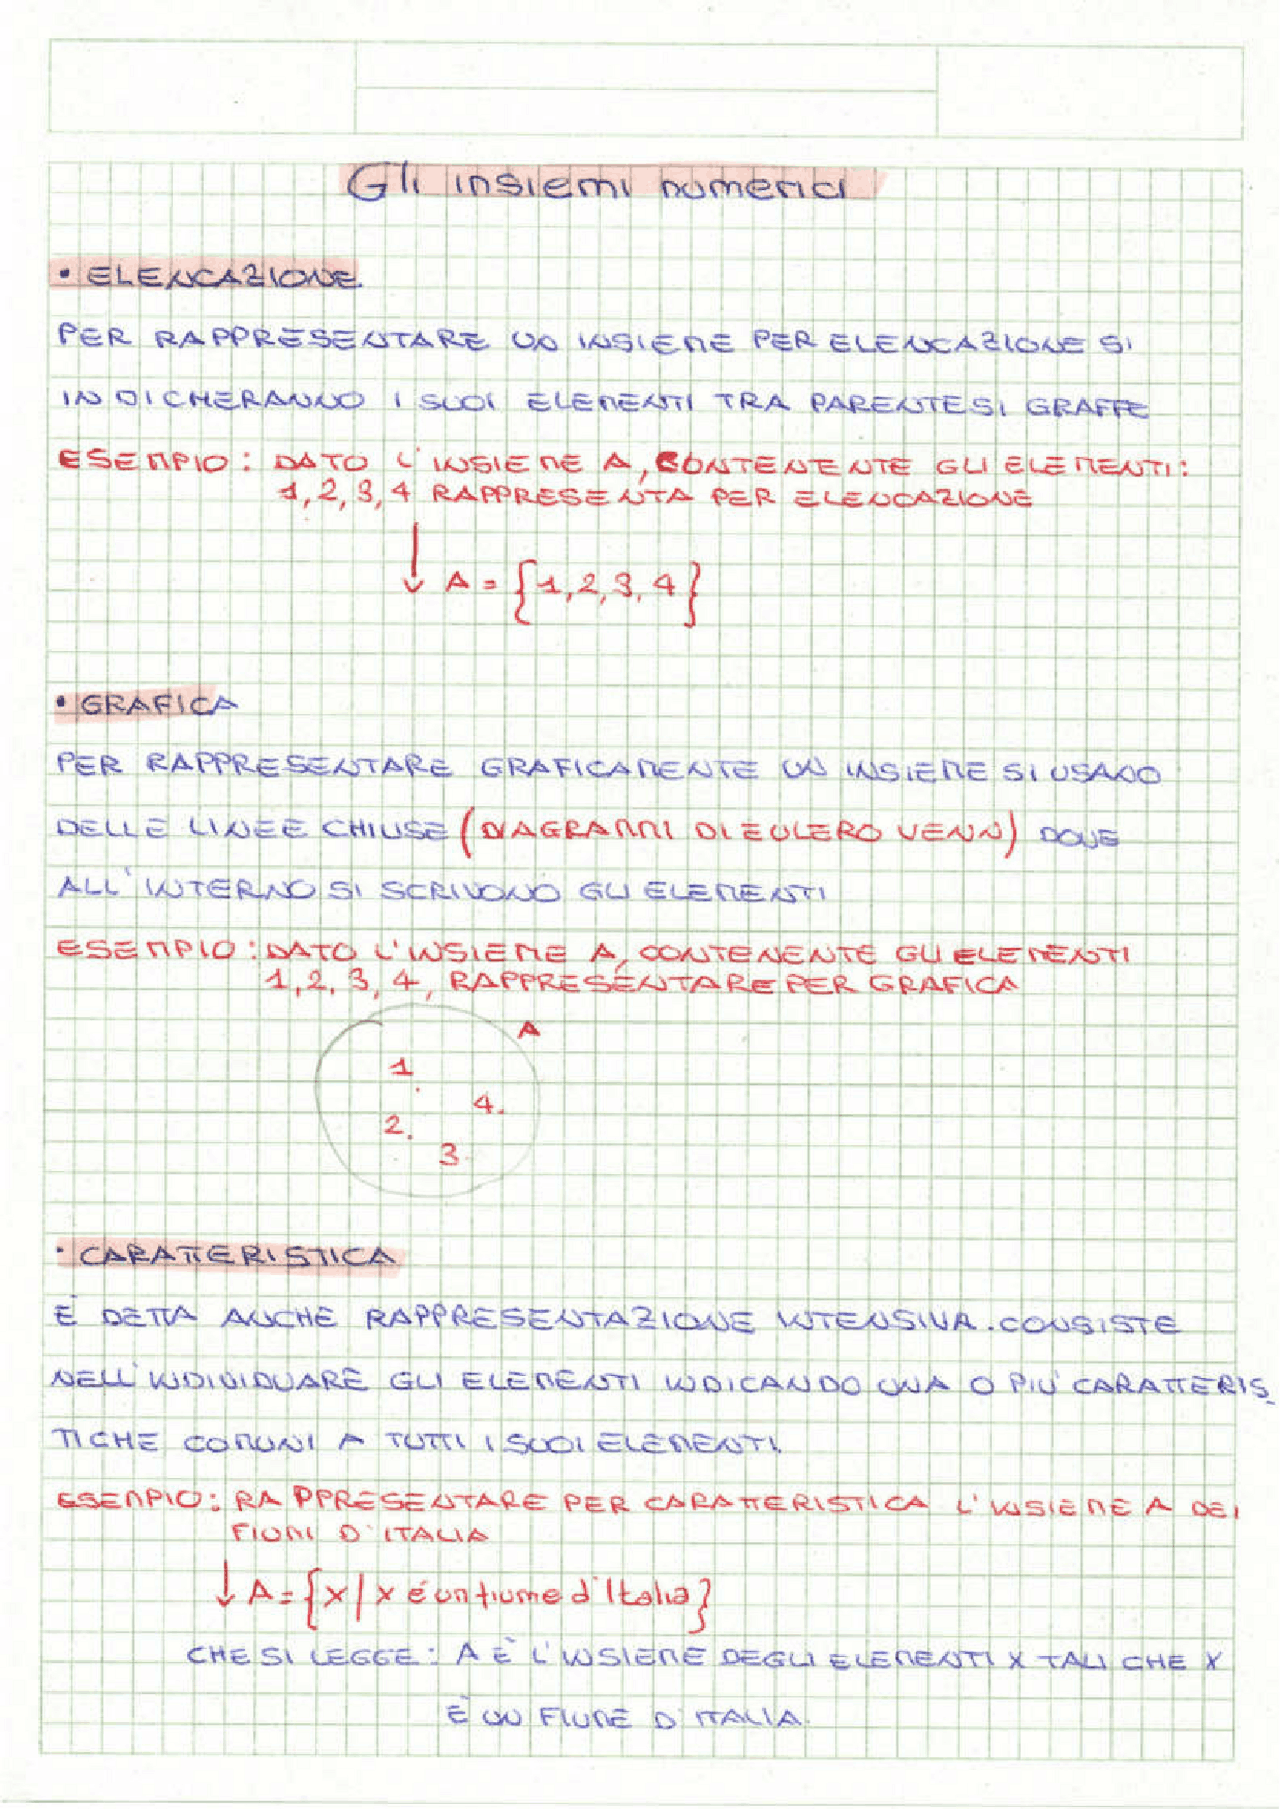 Gli insiemi numerici
• ELENCAZIONE
PER RAPPRESENTARE UN INSIEME PER ELENCAZIONE SI
INDICHERANNO I SUOI ELEMENTI TRA PARENTESI GRAFFE
ESEMPIO: DATO L'INSIEME A, CONTENENTE GLI ELEMENTI:
1,2,3,4 RAPPRESENTA PER ELENCAZIONE
↓ A = {1,2,3,4}
• GRAFICA
PER RAPPRESENTARE GRAFICAMENTE UN INSIEME SI USANO
DELLE LINEE CHIUSE (DIAGRAMMI DI EULERO VENN) DOVE
ALL'INTERNO SI SCRIVONO GLI ELEMENTI
ESEMPIO: DATO L'INSIEME A, CONTENENTE GLI ELEMENTI
1,2,3,4, RAPPRESENTARE PER GRAFICA
A
1
4.
2.
3.
• CARATTERISTICA
È DETTA ANCHE RAPPRESENTAZIONE INTENSIVA. CONSISTE
NELL'INDIVIDUARE GLI ELEMENTI INDICANDO UNA O PIU' CARATTERIS_
TICHE COMUNI A TUTTI I SUOI ELEMENTI.
ESEMPIO: RAPPRESENTARE PER CARATTERISTICA L'INSIEME A DEI
FIUMI D'ITALIA
↓ A = {x / x é un fiume d'Italia}
CHE SI LEGGE: A È L'INSIEME DEGLI ELEMENTI X TALI CHE X
È UN FIUME D'ITALIA.